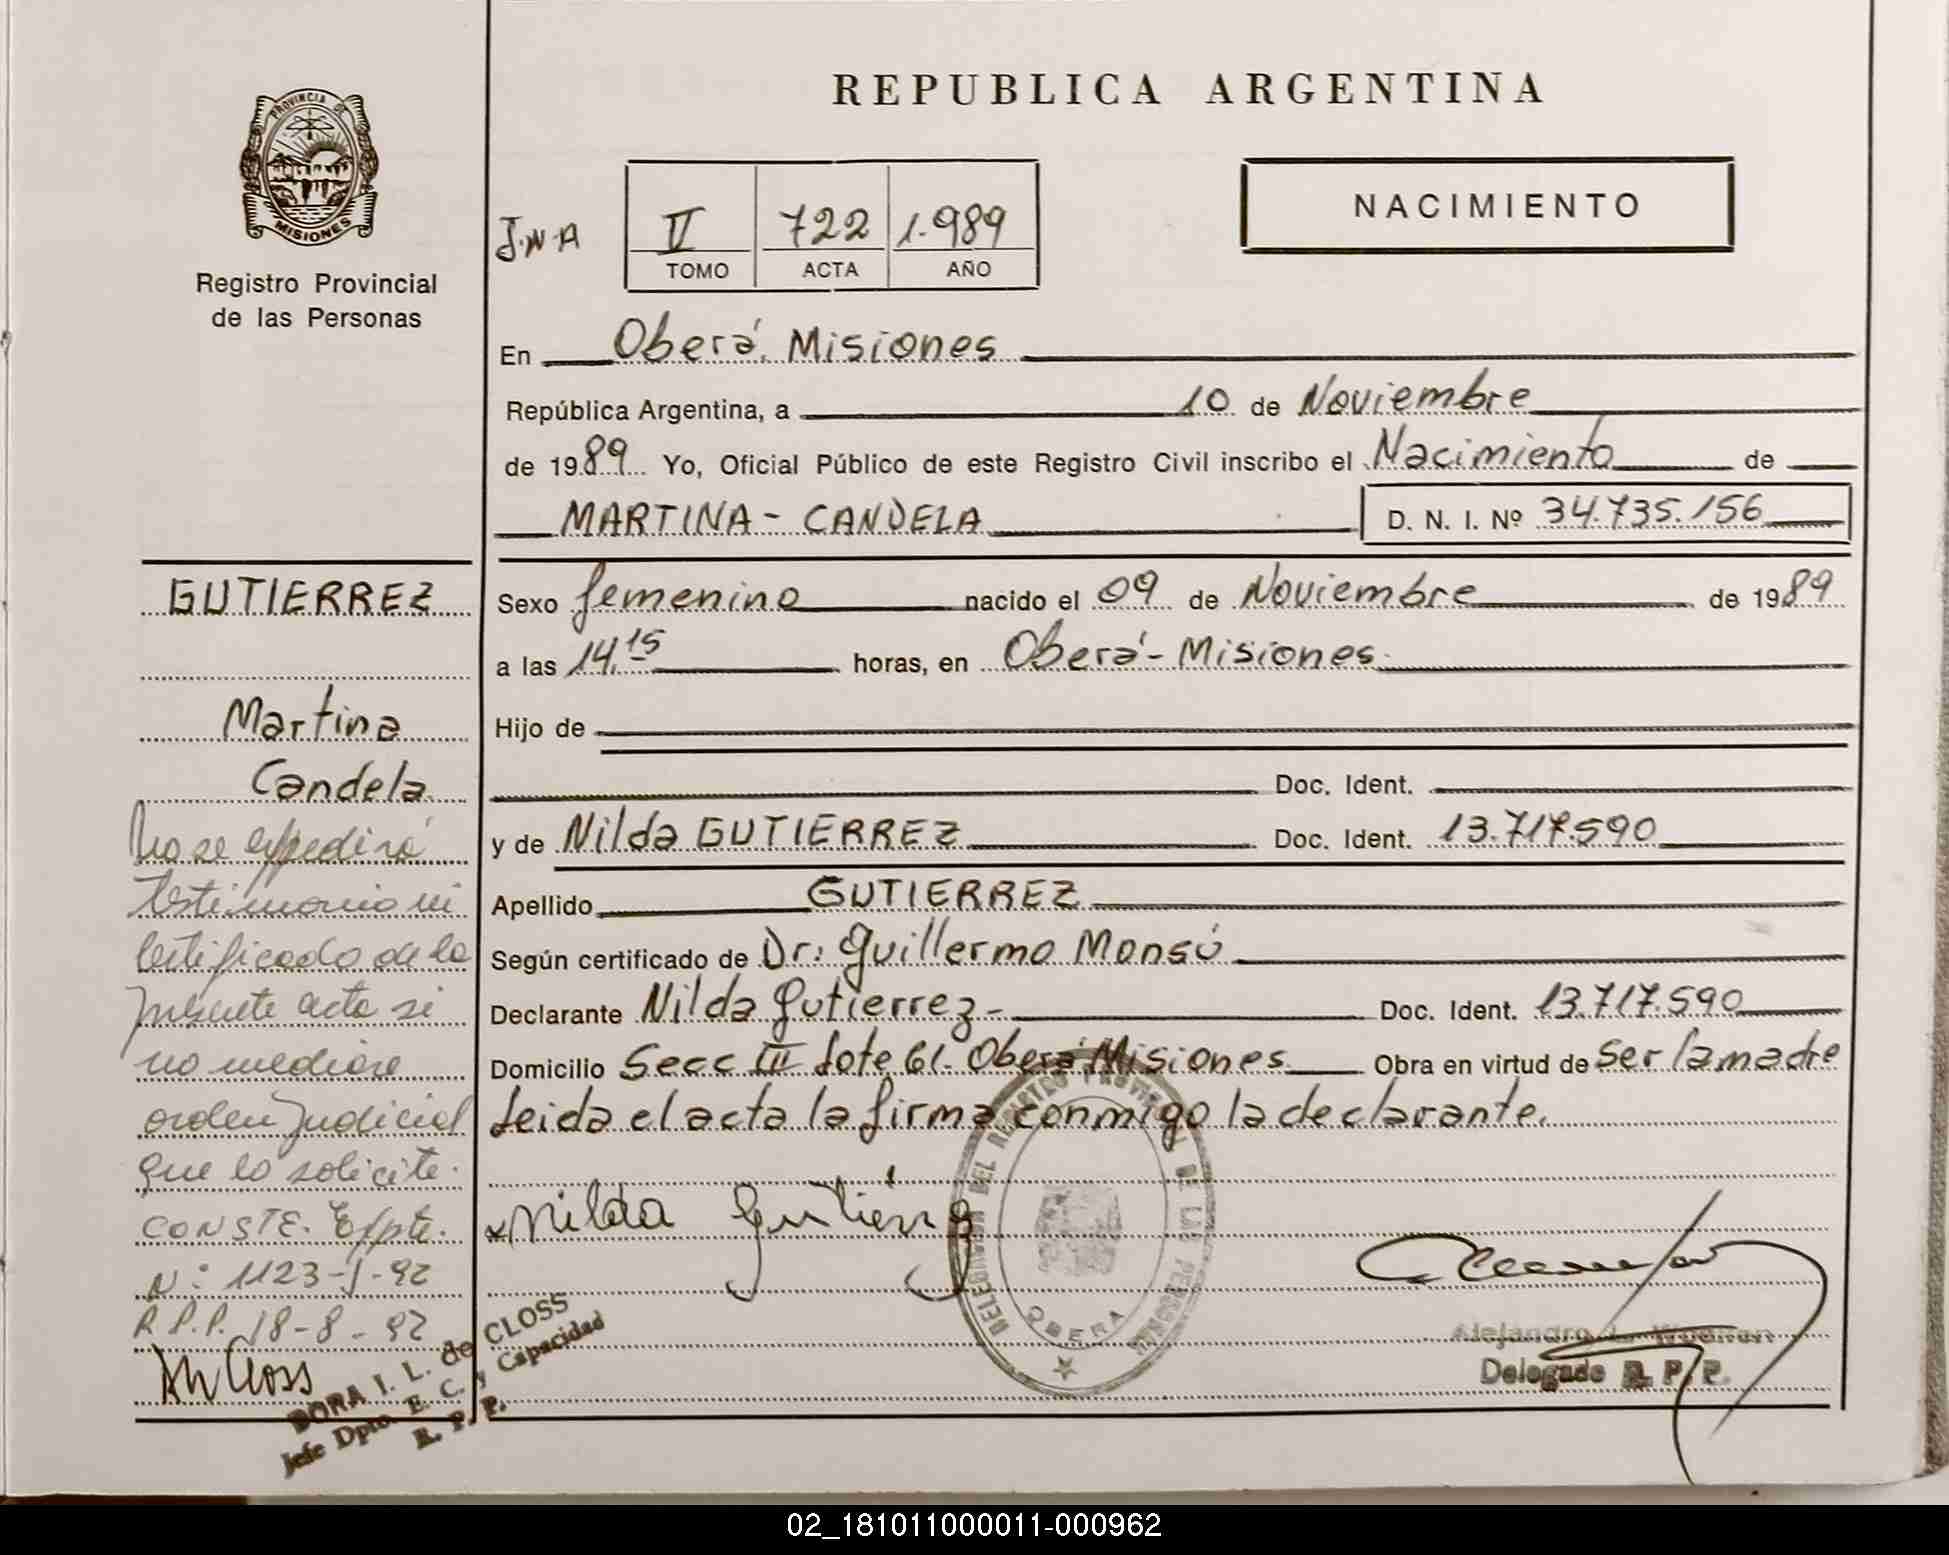 REPUBLICA ARGENTINA
PROVINCIA DE
MISIONES
Registro Provincial
de las Personas
J.N.A
II 722 1.989
TOMO ACTA AÑO
NACIMIENTO
En Oberá, Misiones
República Argentina, a 10 de Noviembre
de 1989 Yo, Oficial Público de este Registro Civil inscribo el Nacimiento de
MARTINA - CANDELA D. N. I. Nº 34.735.156
Sexo femenino nacido el 09 de Noviembre de 1989
a las 14.15 horas, en Oberá - Misiones.
Hijo de
Doc. Ident.
y de Nilda GUTIERREZ Doc. Ident. 13.717.590
Apellido GUTIERREZ
Según certificado de Dr: Guillermo Monsú
Declarante Nilda Gutierrez - Doc. Ident. 13.717.590
Domicilio Secc III Lote 61. Oberá Misiones Obra en virtud de ser la madre
Leida el acta la firma conmigo la declarante.
Nilda Gutierrez
DELEGACION DEL REGISTRO PROVINCIAL DE LAS PERSONAS
OBERA
Alejandro
Delegado R. P. P.
GUTIERREZ
Martina
Candela
No se expedirá
testimonio ni
certificado de la
presente acta si
no mediare
orden Judicial
que lo solicite.
CONSTE. Expte.
Nº: 1123-J-92
R.P.P. 18-8-92
DORA I. L. de CLOSS
Jefe Dpto. E. C. y Capacidad
R. P. P.
02_181011000011-000962